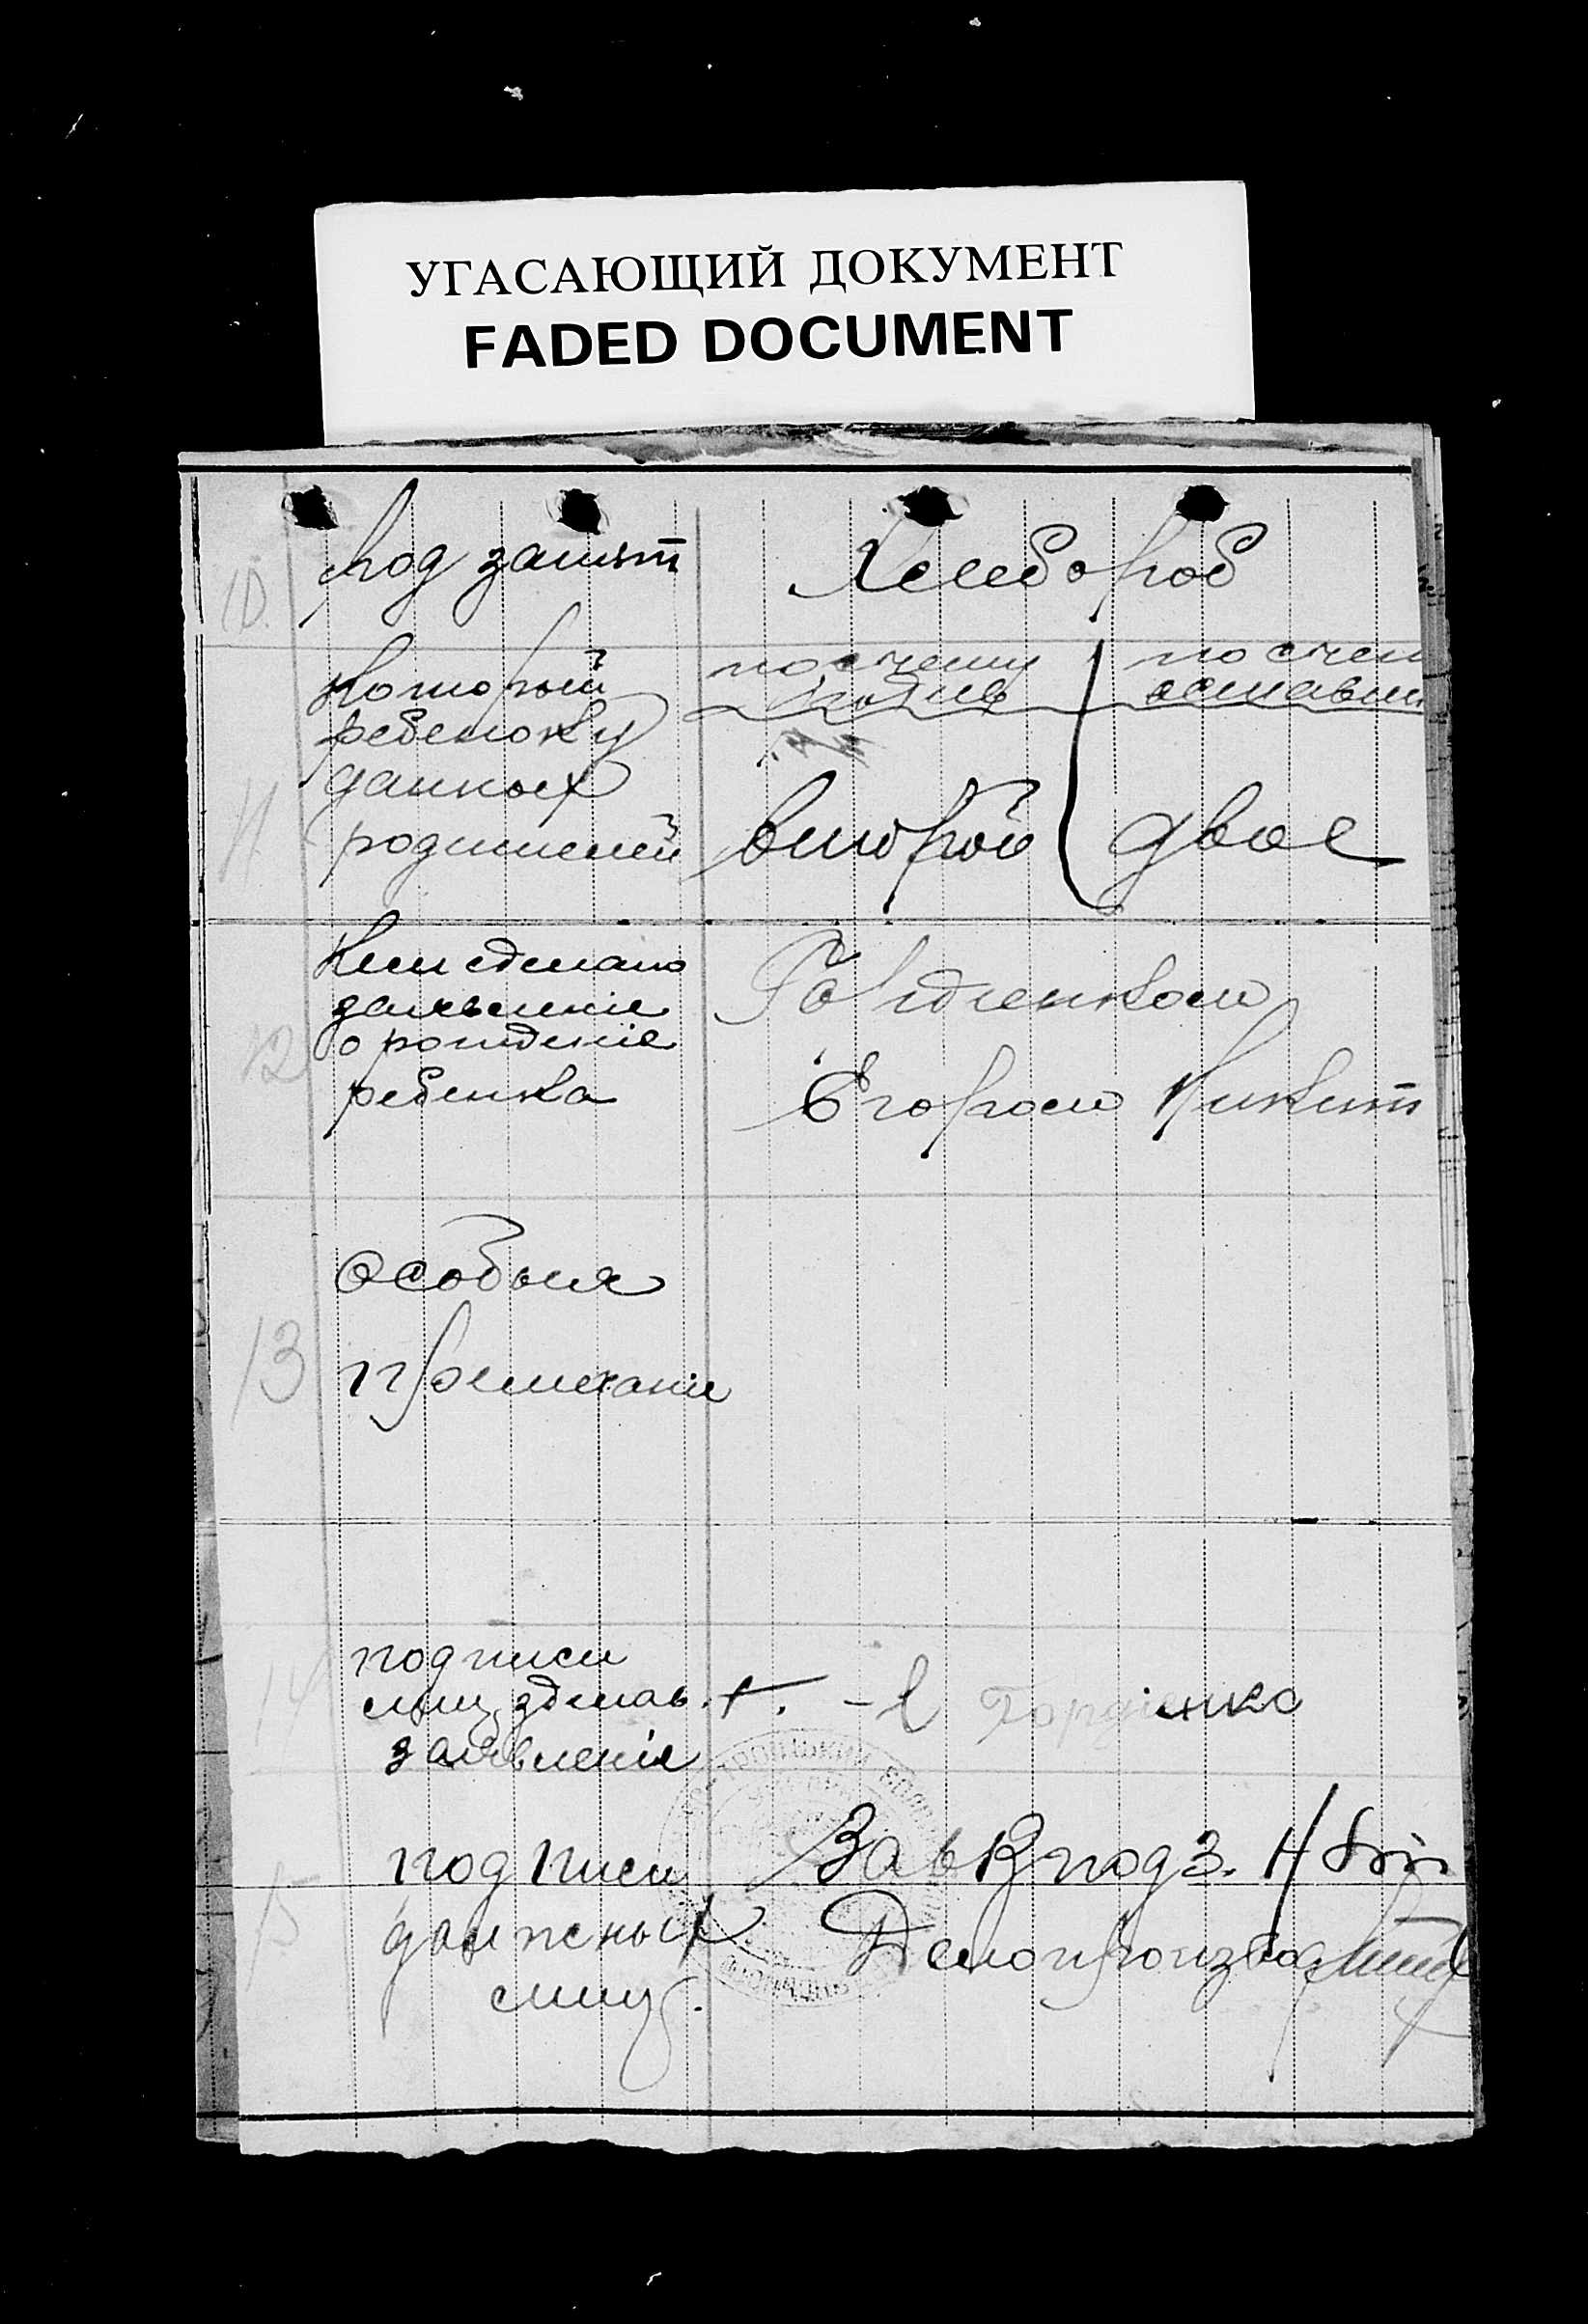 УГАСАЮЩИЙ ДОКУМЕНТ
FADED DOCUMENT
10. род занят Хлебороб
11 который ребенок у данных родителей
по счету
по счету
оставши
второй двое
12 Кем сделано
заявление
о рождение
ребенка
Гордiенком
Егором Никит
13 Особыя
примечание
14 подписи
лиц сделав
заявленiе
Гордiенко
15 подписи
должных
лиц.
Зав. подз.
Делопроизвод